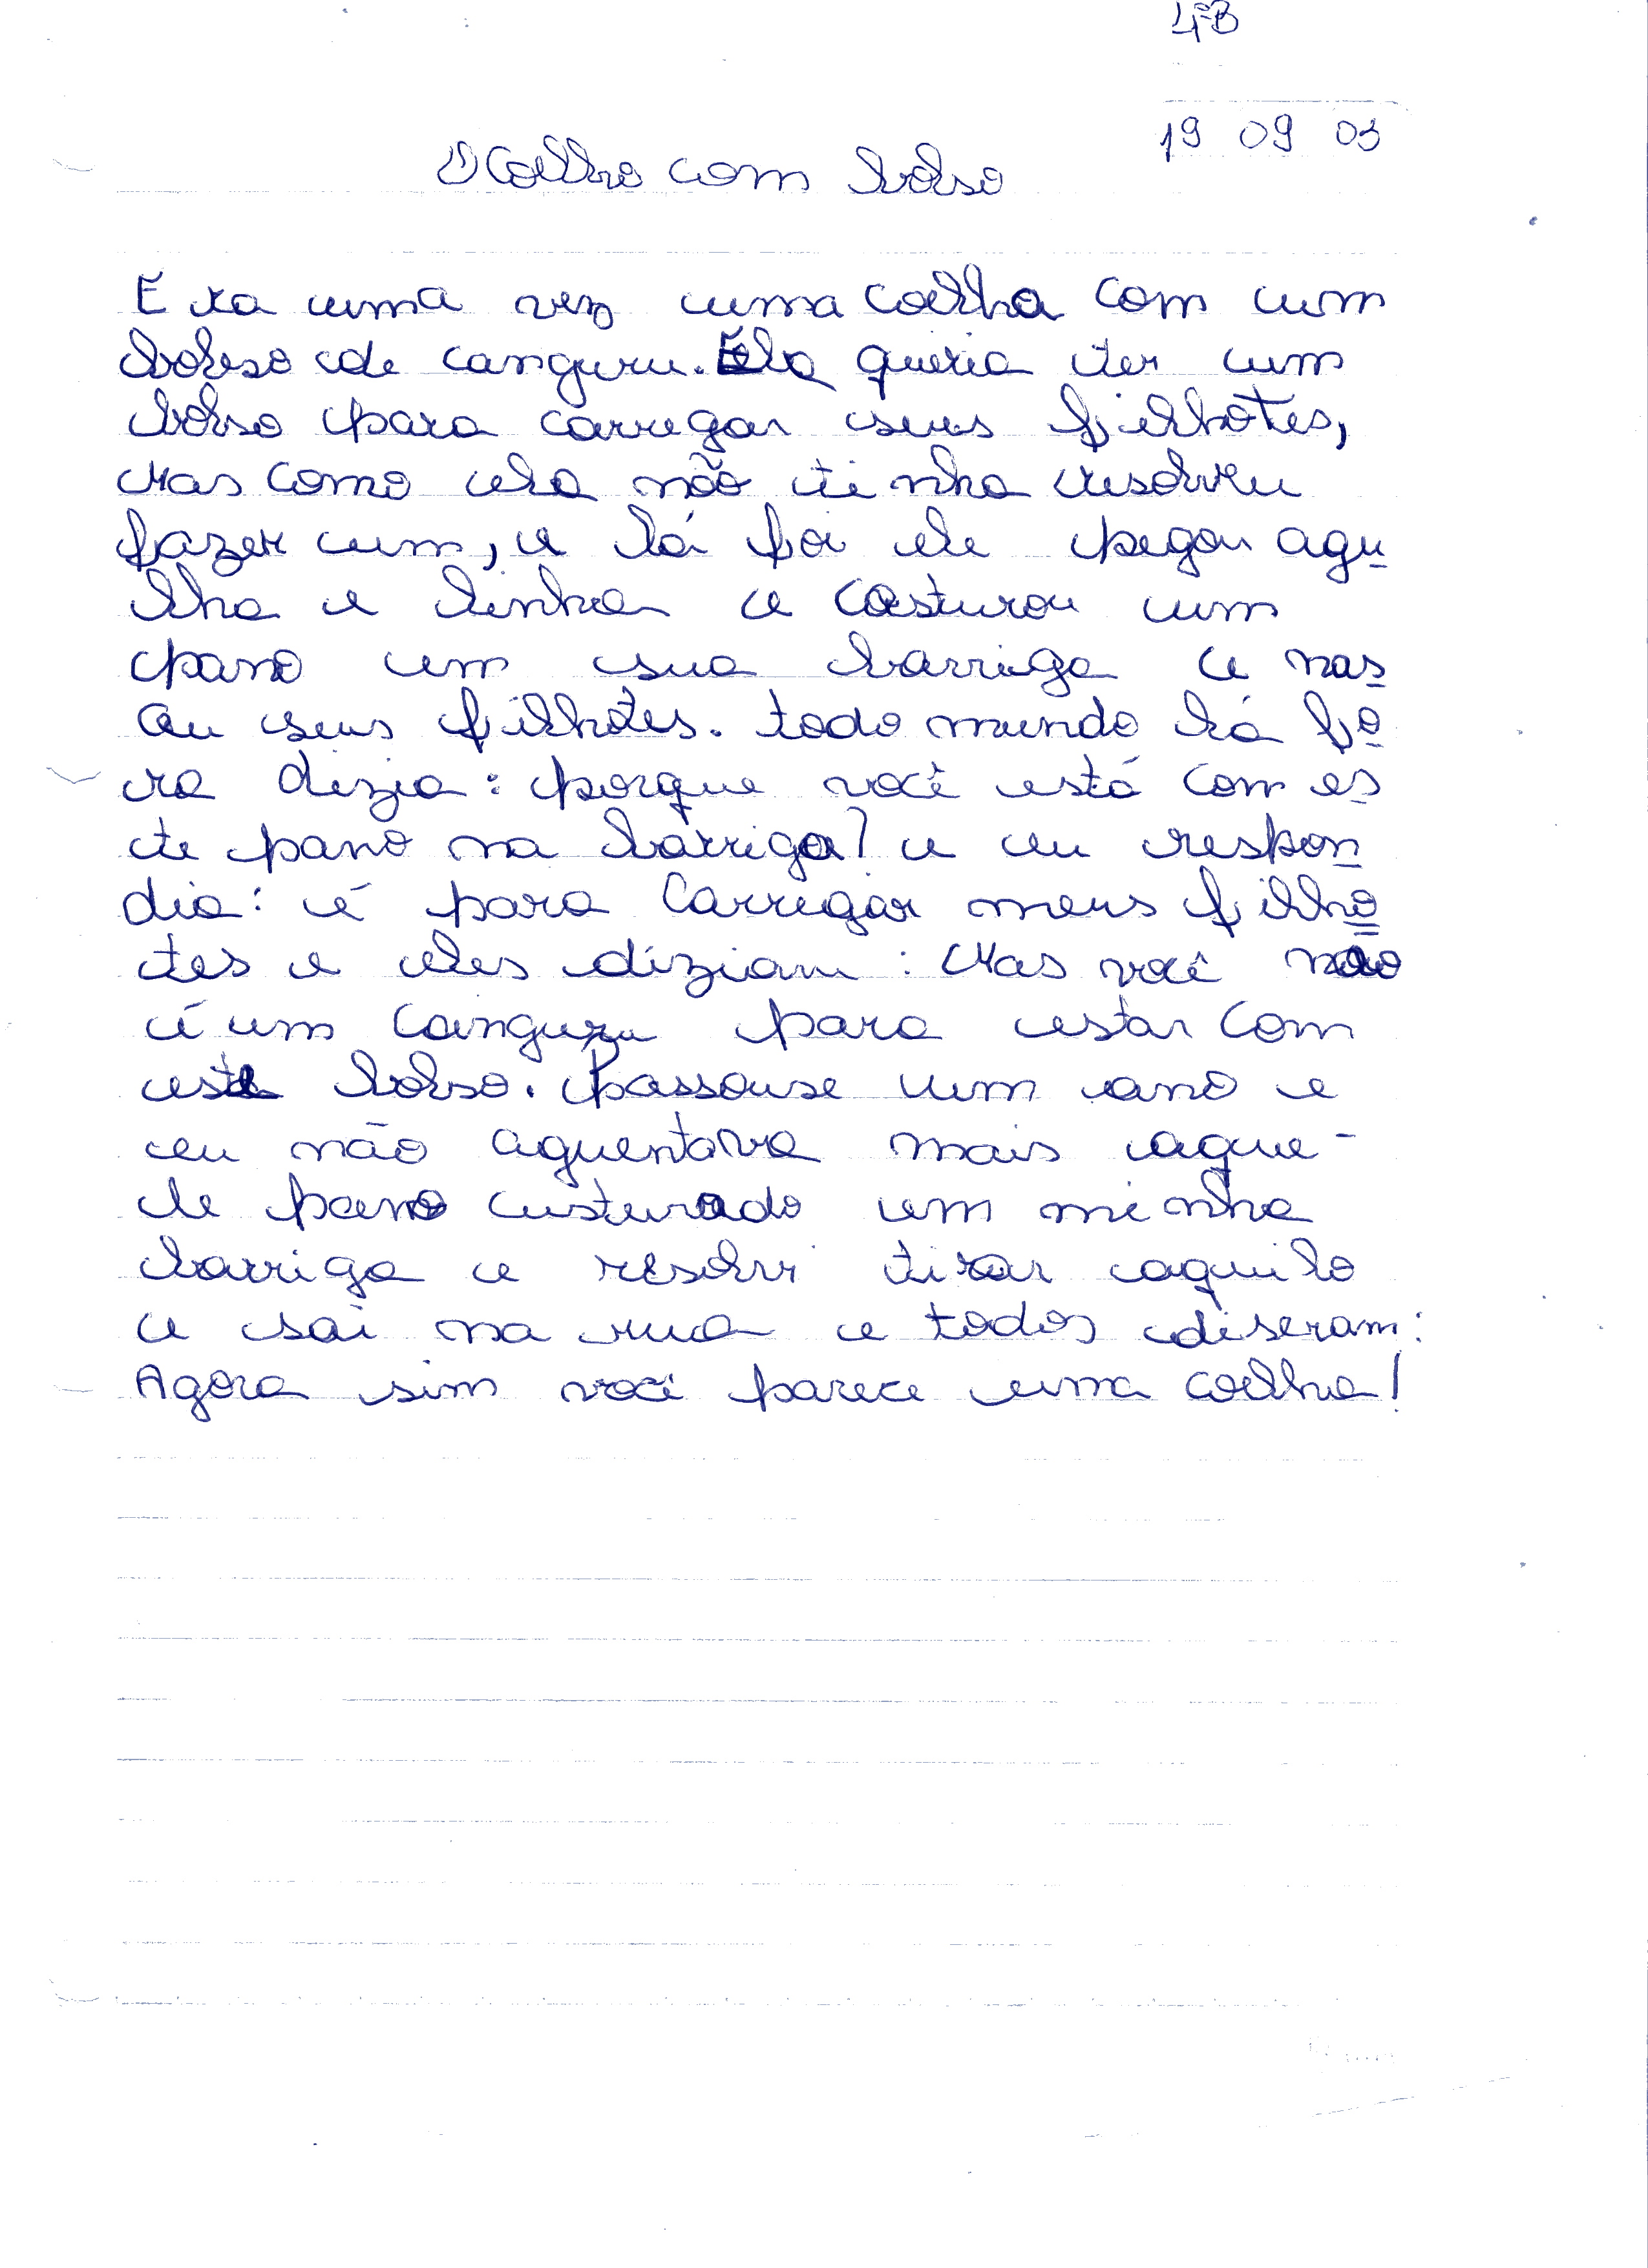 4ªB
19 09 03
O Coelho com bolso
Era uma vez uma coelha com um
bolso de canguru. Ela queria ter um
bolso para carregar seus filhotes,
Mas como ela não tinha resolveu
fazer um, e lá foi ele pegou agu
lha e linha e costurou um
pano em sua barriga e nas
ceu seus filhotes. todo mundo lá fo
ra dizia: porque você está com es
te pano na barriga? e eu respon
dia: é para Carregar meus filho
tes e eles diziam: Mas você não
é um Canguru para estar com
este bolso. Passouse um ano e
eu não aguentava mais aque-
le pano custurado em minha
barriga e resolvi tirar aquilo
e sai na rua e todos diseram:
Agora sim você parece uma coelha!